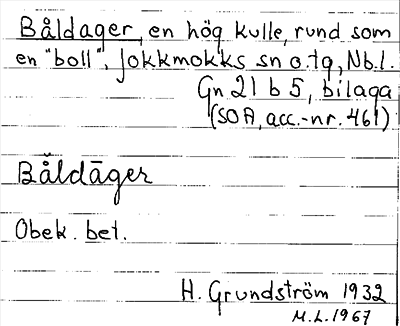 Båldager, en hög kulle, rund som
en "boll", Jokkmokks sn o. tg, Nb. l.
Gn 21 b 5, bilaga
(SOA, acc.-nr. 461)
Bå̆ldāger
Obek. bet.
H. Grundström 1932
M.L. 1967